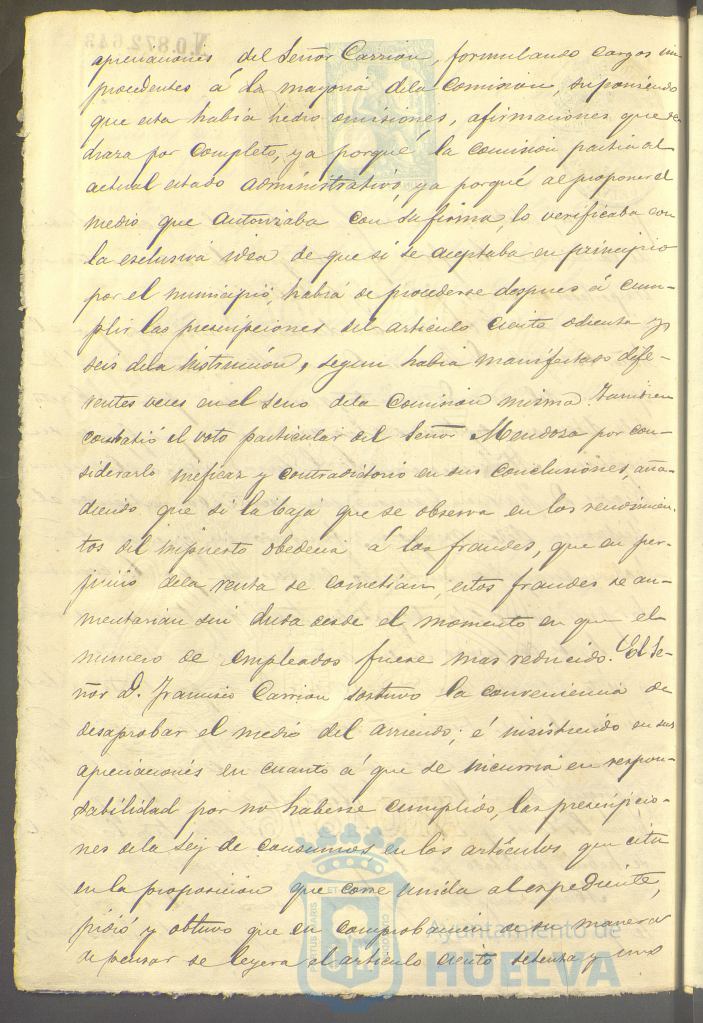 N.0.872.643
apreciaciones del Señor Carrion, formulando cargos im
procedentes á la mayoria dela Comision, suponiendo
que esta habia hecho omisiones, afirmaciones que re
chaza por completo, ya porqué la comision partia al
actual estado administrativo, ya porqué al proponer el
medio que autorizaba con su firma, lo verificaba con
la esclusiva idea de que si se aceptaba en principio
por el municipio, habia de procederse despues á cum-
plir las prescripciones del articulo ciento ochenta y
seis dela instruccion, segun habia manifestado dife-
rentes veces en el seno dela Comision misma. Tambien
combatió el voto particular del Señor Mendoza por con-
siderarlo ineficaz y contradictorio en sus conclusiones, aña-
diendo que si la baja que se observa en los rendimien-
tos del impuesto obedecia á los fraudes, que en per-
juicio dela renta se cometian, estos fraudes se au-
mentarian sin duda desde el momento en que el
numero de empleados fuese mas reducido. El Se-
ñor D. Francisco Carrion sostuvo la conveniencia de
desaprobar el medio del arriendo; é insistiendo en sus
apreciaciones en cuanto á que se incurria en respon-
sabilidad por no haberse cumplido, las prescripcio-
nes dela Ley de consumos, en los articulos que cita
en la proposicion que corre unida al expediente,
pidió y obtuvo que en comprobacion de su manera
de pensar se leyera el articulo ciento setenta y uno
Ayuntamiento de
HUELVA